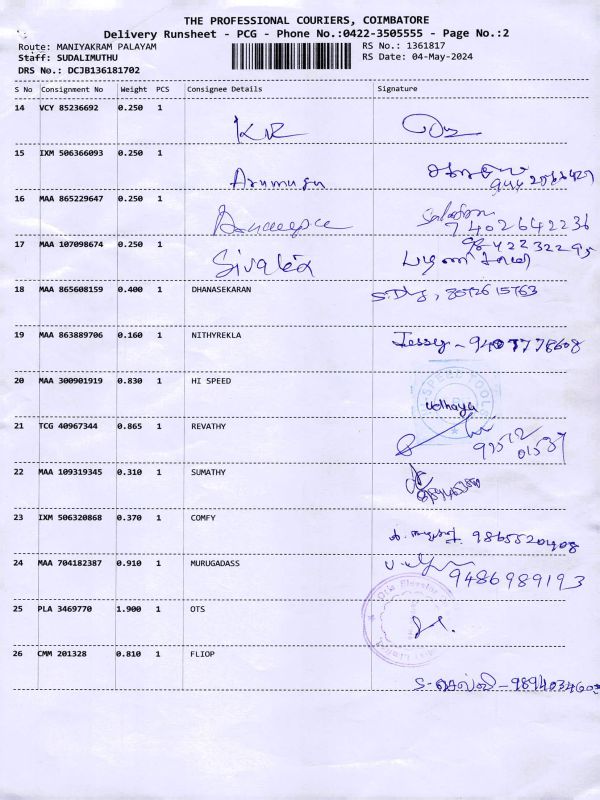 THE PROFESSIONAL COURIERS, COIMBATORE
Delivery Runsheet - PCG - Phone No.:0422-3505555 - Page No.:2
Route: MANIYAKRAM PALAYAM
RS No.: 1361817
Staff: SUDALIMUTHU
RS Date: 04-May-2024
DRS No.: DCJB136181702
S No Consignment No Weight PCS Consignee Details Signature
14 VCY 85236692 0.250 1 KNR
15 IXM 506366093 0.250 1 Arumugu
16 MAA 865229647 0.250 1
7402642236
17 MAA 107098674 0.250 1
18 MAA 865608159 0.400 1 DHANASEKARAN
19 MAA 863889706 0.160 1 NITHYREKLA Jessy -
20 MAA 300901919 0.830 1 HI SPEED udhaya
21 TCG 40967344 0.865 1 REVATHY
22 MAA 109319345 0.310 1 SUMATHY
23 IXM 506320868 0.370 1 COMFY 9865520408
24 MAA 704182387 0.910 1 MURUGADASS 9486989193
25 PLA 3469770 1.900 1 OTS
26 CMM 201328 0.810 1 FLIOP
S- செல்வி -